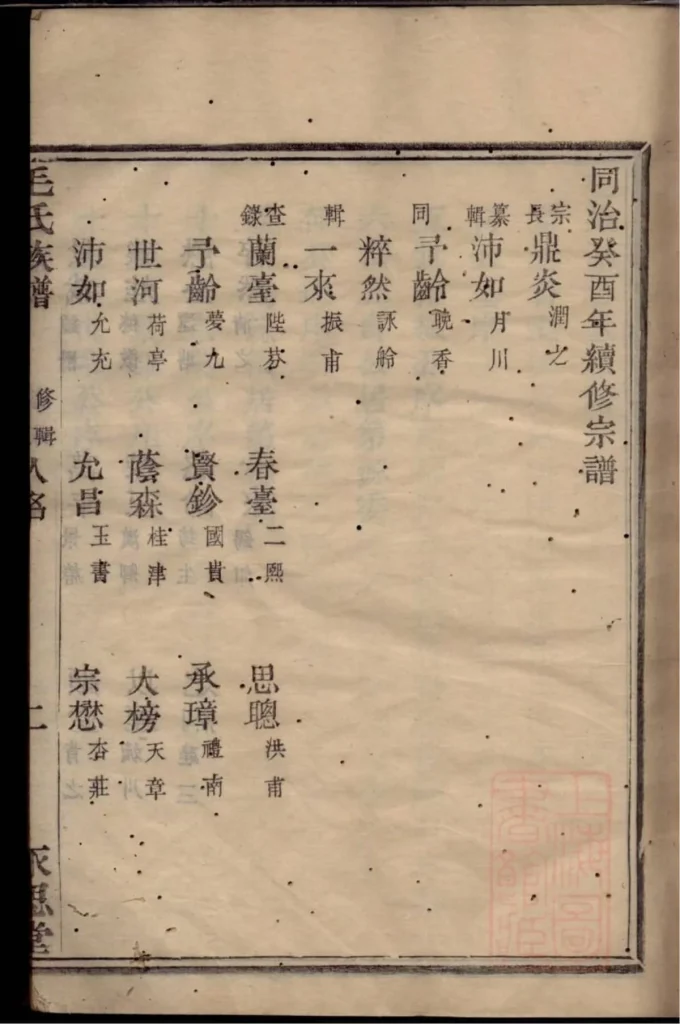 同治癸酉年續修宗譜
宗長 鼎炎 潤之
纂輯 沛如 月川
同 予齡 晚香
粹然 詠舲
輯 一來 振甫
查錄 蘭臺 陛芬 春臺 二熙 思聰 洪甫
予齡 夢九 賢鉁 國貴 承璋 禮南
世河 荷亭 蔭森 桂津 大榜 天章
沛如 允充 允昌 玉書 宗懋 杏莊
毛氏族譜 修輯人名 二 永思堂
上海圖書館藏